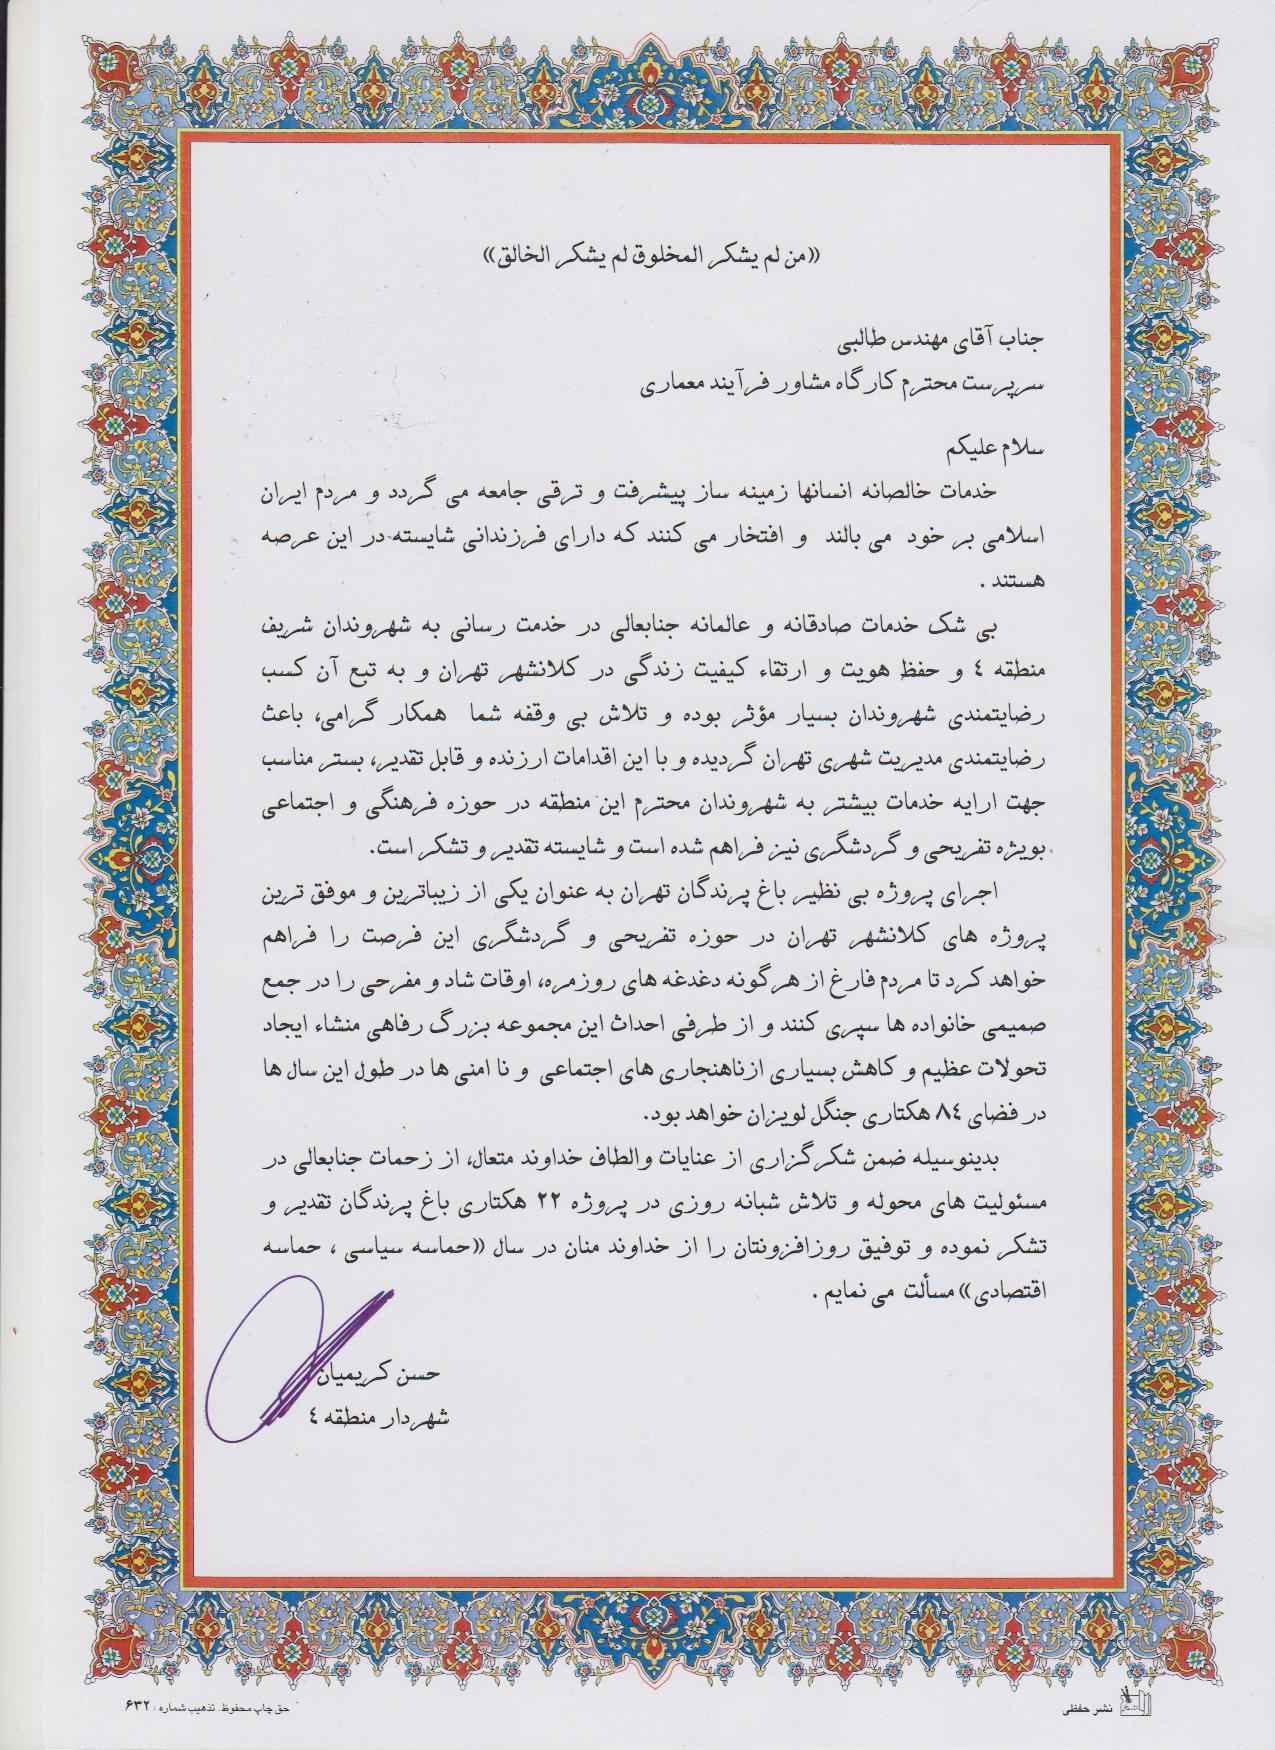 «من لم يشكر المخلوق لم يشكر الخالق»
جناب آقای مهندس طالبی
سرپرست محترم کارگاه مشاور فرآیند معماری
سلام علیکم
خدمات خالصانه انسانها زمینه ساز پیشرفت و ترقی جامعه می گردد و مردم ایران
اسلامی بر خود می بالند و افتخار می کنند که دارای فرزندانی شایسته در این عرصه
هستند .
بی شک خدمات صادقانه و عالمانه جنابعالی در خدمت رسانی به شهروندان شریف
منطقه ٤ و حفظ هویت و ارتقاء کیفیت زندگی در کلانشهر تهران و به تبع آن کسب
رضایتمندی شهروندان بسیار مؤثر بوده و تلاش بی وقفه شما همکار گرامی، باعث
رضایتمندی مدیریت شهری تهران گردیده و با این اقدامات ارزنده و قابل تقدیر، بستر مناسب
جهت ارایه خدمات بیشتر به شهروندان محترم این منطقه در حوزه فرهنگی و اجتماعی
بویژه تفریحی و گردشگری نیز فراهم شده است و شایسته تقدیر و تشکر است.
اجرای پروژه بی نظیر باغ پرندگان تهران به عنوان یکی از زیباترین و موفق ترین
پروژه های کلانشهر تهران در حوزه تفریحی و گردشگری این فرصت را فراهم
خواهد کرد تا مردم فارغ از هرگونه دغدغه های روزمره، اوقات شاد و مفرحی را در جمع
صمیمی خانواده ها سپری کنند و از طرفی احداث این مجموعه بزرگ رفاهی منشاء ایجاد
تحولات عظیم و کاهش بسیاری ازناهنجاری های اجتماعی و نا امنی ها در طول این سال ها
در فضای ٨٤ هکتاری جنگل لویزان خواهد بود.
بدینوسیله ضمن شکرگزاری از عنایات و الطاف خداوند متعال، از زحمات جنابعالی در
مسئولیت های محوله و تلاش شبانه روزی در پروژه ٢٢ هکتاری باغ پرندگان تقدیر و
تشکر نموده و توفیق روزافزونتان را از خداوند منان در سال «حماسه سیاسی ، حماسه
اقتصادی» مسألت می نمایم .
حسن کریمیان
شهردار منطقه ٤
نشر حفظی
حق چاپ محفوظ. تذهیب شماره : ۶۳۲